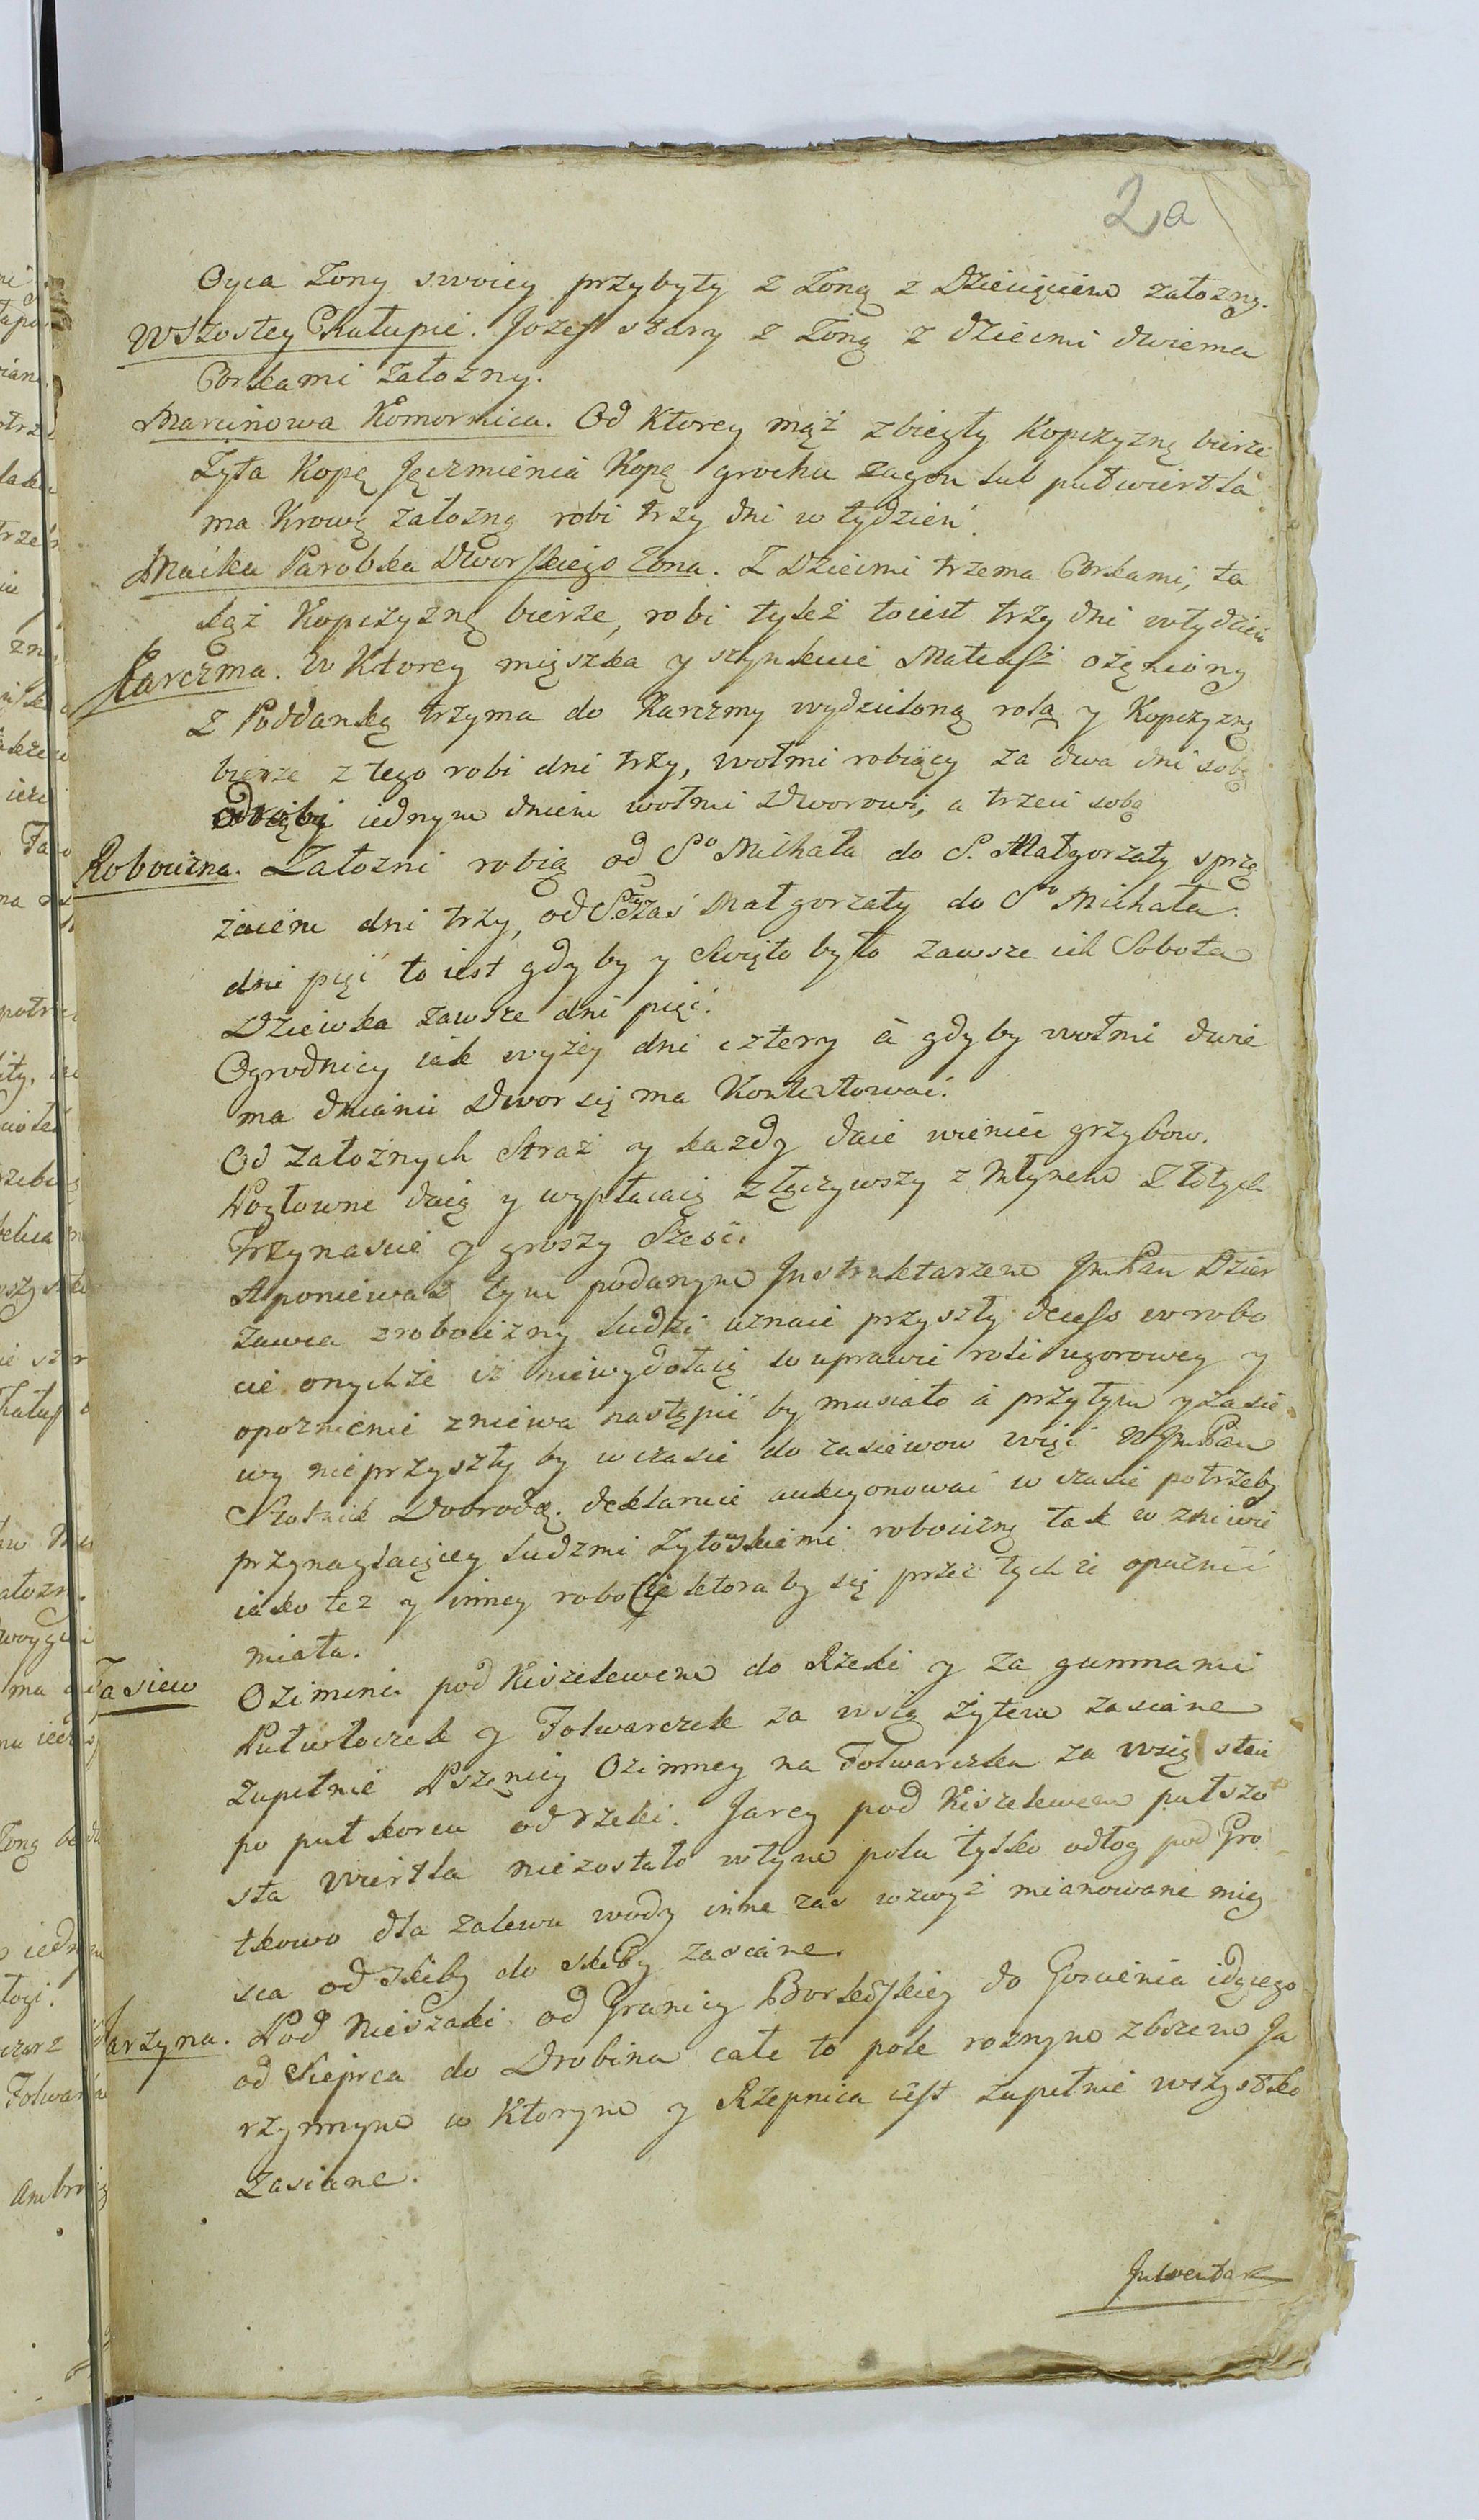 2a
Oyca Zony swoiey przybyły z Zoną z Dziecięciem załozny.
W Szostey Chałupie. Jozef stary z Zoną z dziecmi dwiema
Corkami Załozny.
Marcinowa Komornica. Od Ktorey mąż zbiegły Kopczyznę bierze
Zyta Kopę Jęczmienia Kopę grochu zagon lub pułwiertla
ma Krowę załozną robi trzy dni w tydzień.
Maćka Parobka Dworskiego Zona. Z Dziecmi trzema Corkami, ta
kąż Kopczyznę bierze, robi tyleż toiest trzy dni w tydzień
Karczma. w Ktorey mięszka y szynkuie Mateusz ożęniony
z Poddanką trzyma do Karczmy wydzieloną rolą y Kopczyznę
bierze z tego robi dni trzy, wołmi robiący za dwa dni sobą
odrąbi iednym dniem wołmi Dworowi, a trzeci sobą
Robocizna. Załozni robią od Sº Michała do S. Małgorzaty sprzę
żaiem dni trzy, od S zaś Małgorzaty do Sº Michała
dni pięć to iest gdyby y Swięto było zawsze ich Sobota
Dziewka zawsze dni pięć.
Ogrodnicy iak wyżey dni cztery à gdyby wołmi dwie
ma dniami Dwor się ma Kontentować.
Od Załoznych Straż y kazdy daie wienieć grzybow.
Pogłowne daią y wypłacaią złączywszy z Młynem Złotych
Trzynascie y groszy Szesć.
A poniewaz tym podanym Instruktarzem JmPan Dzier
zawca z robocizny ludzi uznaie przyszły decess w robo
cie onychże iż niewydołaią w uprawie roli ugorowey y
opoznienie zniewa nastąpić by musiało à przytym y zasie
wy nieprzyszły by w czasie do zasiewow więc WJmPan
Stolnik Dobrodz. deklaruie aukcyonować w czasie potrzeby
przynaglaiącey ludzmi Zytowskiemi robociznę tak w zniwie
iako tez y inney robocie ktora by się przez tychże opuznić
miała.
Zasiew Ozimina pod Kiszelewem do Rzeki y za gumnami
Pułwłoczek y Folwarczek za wsią żytem zasiane
zupełnie Pszęnicy Ozimney na Folwarczku za wsią staie
po puł korcu od rzeki. Jarey pod Kiszelewem pułszo
sta wiertla niezostało w tym polu tylko odłog pod Gro
tkowo dla zalewu wody inne zas wzwyż mianowane miey
sca od skiby do skiby zasiane.
Jarzyna. Pod Nieszaki od Granicy Borkoskiey do Goscienia idącego
od Sieprca do Drobina całe to pole roznym zbozem Ja
rzynnym w Ktorym y Rzepnica iest zupełnie wszystko
Zasiane.
Inwentarz